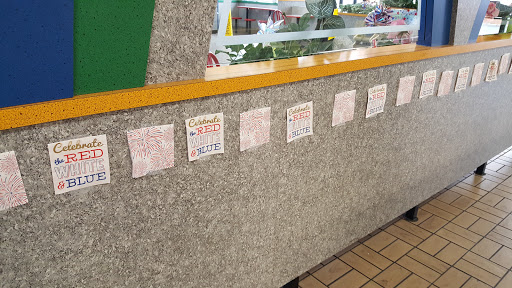 Celebrate
the RED
WHITE
& BLUE
Celebrate
the RED
WHITE
& BLUE
Celebrate
the RED
WHITE
& BLUE
Celebrate
the RED
WHITE
& BLUE